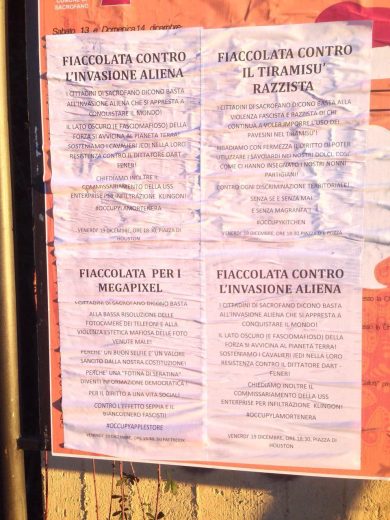 SACROFANO
Sabato 13 e Domenica 14 dicembre:
FIACCOLATA CONTRO
L'INVASIONE ALIENA
I CITTADINI DI SACROFANO DICONO BASTA
ALL'INVASIONE ALIENA CHE SI APPRESTA A
CONQUISTARE IL MONDO!
IL LATO OSCURO (E FASCIOMAFIOSO) DELLA
FORZA SI AVVICINA AL PIANETA TERRA!
SOSTENIAMO I CAVALIERI JEDI NELLA LORO
RESISTENZA CONTRO IL DITTATORE DART
FENER!
CHIEDIAMO INOLTRE IL
COMMISSARIAMENTO DELLA USS
ENTERPRISE PER INFILTRAZIONE KLINGON!
#OCCUPYLAMORTENERA
VENERDI' 19 DICEMBRE, ORE 18:30, PIAZZA DI
HOUSTON
FIACCOLATA CONTRO
IL TIRAMISU'
RAZZISTA
I CITTADINI DI SACROFANO DICONO BASTA ALLA
VIOLENZA FASCISTA E RAZZISTA DI CHI
CONTINUA A VOLER IMPORRE L'USO DEI
PAVESINI NEL TIRAMISU'!
RIBADIAMO CON FERMEZZA IL DIRITTO DI POTER
UTILIZZARE I SAVOIARDI NEI NOSTRI DOLCI, COSI'
COME CI HANNO INSEGNATO I NOSTRI NONNI
PARTIGIANI!
CONTRO OGNI DISCRIMINAZIONE TERRITORIALE!
SENZA SE E SENZA MAI
E SENZA MAGRANTA'!
#OCCUPYKITCHEN
VENERDI' 19 DICEMBRE, ORE 18:30
FIACCOLATA PER I
MEGAPIXEL
I CITTADINI DI SACROFANO DICONO BASTA
ALLA BASSA RISOLUZIONE DELLE
FOTOCAMERE DEI TELEFONI E ALLA
VIOLENZA ESTETICA MAFIOSA DELLE FOTO
VENUTE MALE!
PERCHE' UN BUON SELFIE E' UN VALORE
SANCITO DALLA NOSTRA COSTITUZIONE!
PERCHE' UNA "FOTINA DI SERATINA"
DIVENTI INFORMAZIONE DEMOCRATICA!
PER IL DIRITTO A UNA VITA SOCIAL!
CONTRO L'EFFETTO SEPPIA E IL
BIANCOENERO FASCISTI!
#OCCUPYAPPLESTORE
VENERDI' 19 DICEMBRE, ORE 18:30
FIACCOLATA CONTRO
L'INVASIONE ALIENA
I CITTADINI DI SACROFANO DICONO BASTA
ALL'INVASIONE ALIENA CHE SI APPRESTA A
CONQUISTARE IL MONDO!
IL LATO OSCURO (E FASCIOMAFIOSO) DELLA
FORZA SI AVVICINA AL PIANETA TERRA!
SOSTENIAMO I CAVALIERI JEDI NELLA LORO
RESISTENZA CONTRO IL DITTATORE DART
FENER!
CHIEDIAMO INOLTRE IL
COMMISSARIAMENTO DELLA USS
ENTERPRISE PER INFILTRAZIONE KLINGON!
#OCCUPYLAMORTENERA
VENERDI' 19 DICEMBRE, ORE 18:30, PIAZZA DI
HOUSTON